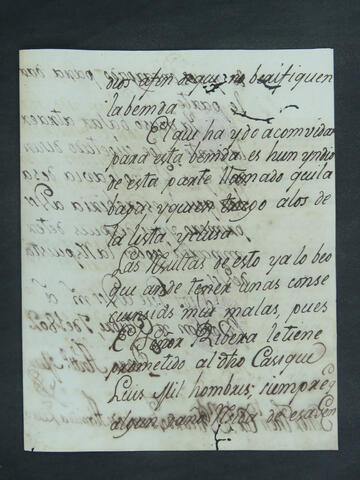 dios afin de que no beaifiquen
la bemda
El que ha ydo a comvidar
para esta bemda es hun yndio
de esta parte llamado quila
bara y quien trago alos de
la lista, y
Las Resultas de esto ya lo beo
que ande tener unas conse
quensias mui malas, pues
El Señor Ribera le tiene
prometido al dho Casique
Luis Mil hombres, siempre q
algun dano de esa